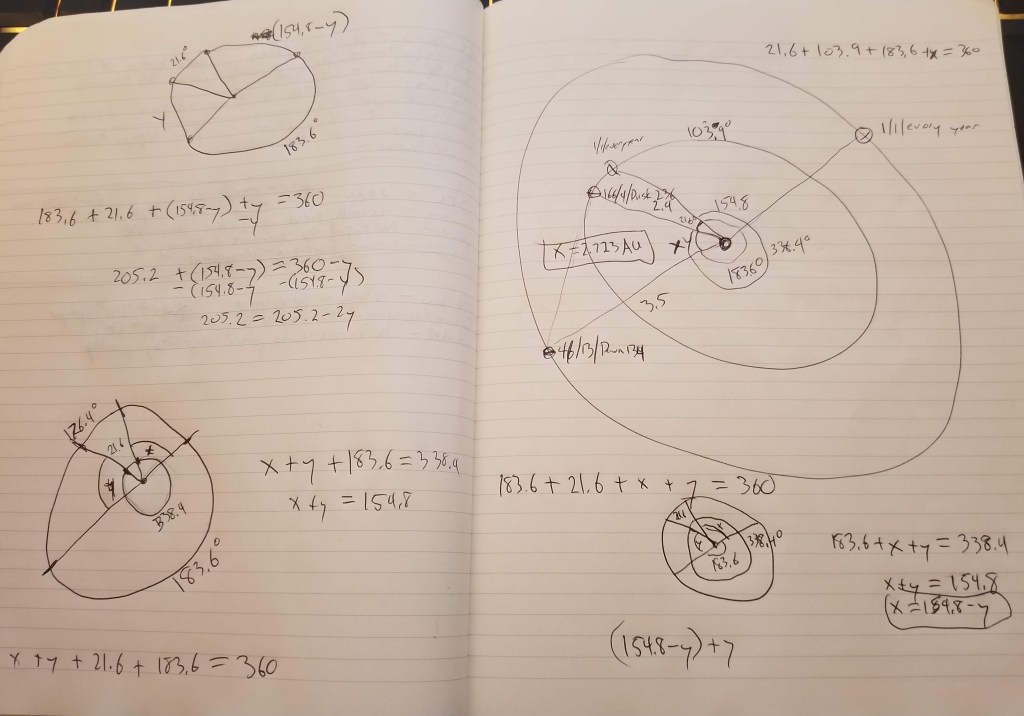 (154.8-y)
21.6°
y
183.6°
183.6 + 21.6 + (154.8-y) + y = 360
-y
205.2 + (154.8-y) = 360 - y
- (154.8-y -(154.8-y)
205.2 = 205.2 - 2y
126.4°
21.6
x
y
338.4
183.6°
x + y + 183.6 = 338.4
x + y = 154.8
x + y + 21.6 + 183.6 = 360
21.6 + 103.9 + 183.6 + x = 360
1/1/every year
103.9°
1/1/every year
166/4/Dusk 236
2.4
154.8
21.6
x = 2.723 AU
x
y
338.4°
183.6°
3.5
46/13/Dawn 134
183.6 + 21.6 + x + y = 360
21.6
x
y
338.4°
183.6
183.6 + x + y = 338.4
x + y = 154.8
x = 154.8 - y
(154.8-y) + y